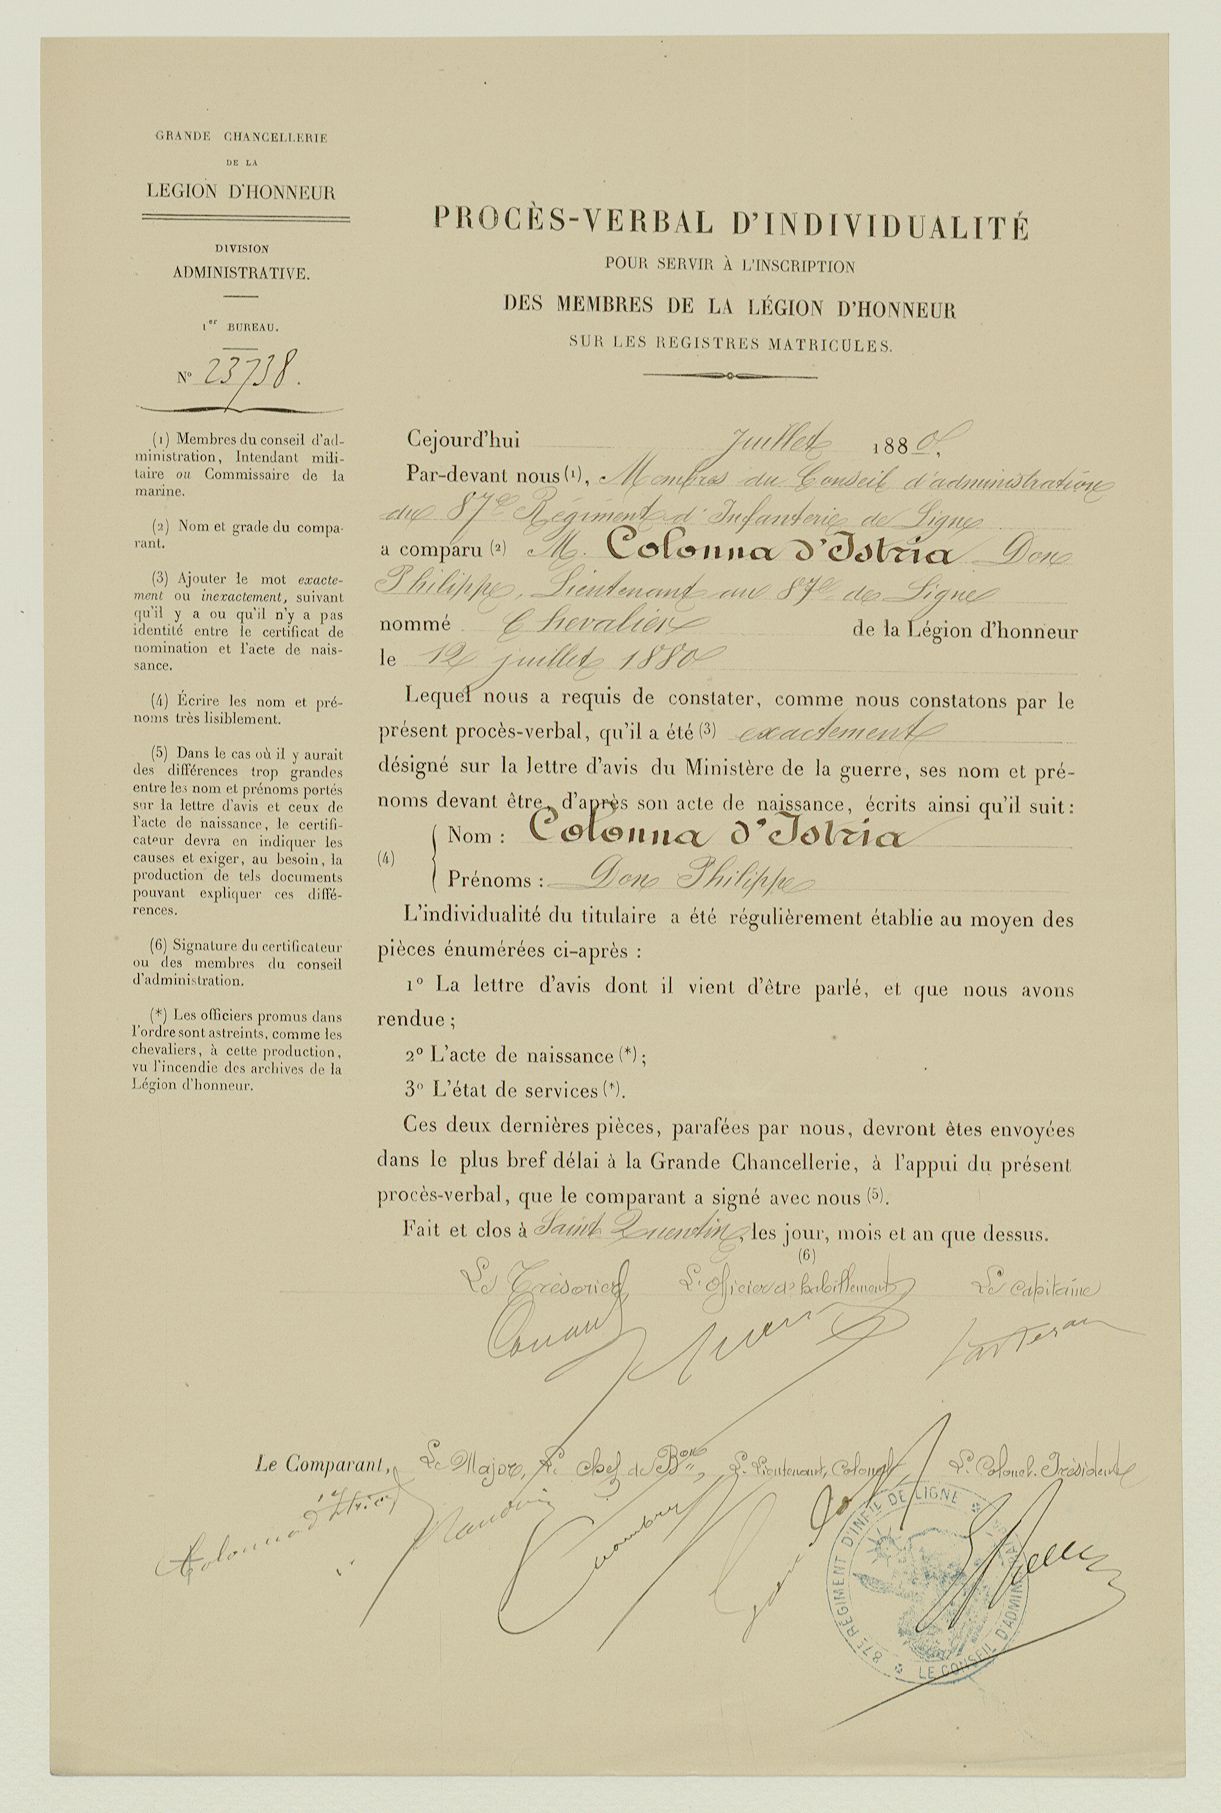 GRANDE CHANCELLERIE
DE LA
LEGION D'HONNEUR
DIVISION
ADMINISTRATIVE.
1er BUREAU.
N° 23738.
(1) Membres du conseil d'ad-
ministration, Intendant mili-
taire ou Commissaire de la
marine.
(2) Nom et grade du compa-
rant.
(3) Ajouter le mot exacte-
ment ou inexactement, suivant
qu'il y a ou qu'il n'y a pas
identité entre le certificat de
nomination et l'acte de nais-
sance.
(4) Écrire les nom et pré-
noms très lisiblement.
(5) Dans le cas où il y aurait
des différences trop grandes
entre les nom et prénoms portés
sur la lettre d'avis et ceux de
l'acte de naissance, le certifi-
cateur devra en indiquer les
causes et exiger, au besoin, la
production de tels documents
pouvant expliquer ces diffé-
rences.
(6) Signature du certificateur
ou des membres du conseil
d'administration.
(*) Les officiers promus dans
l'ordre sont astreints, comme les
chevaliers, à cette production,
vu l'incendie des archives de la
Légion d'honneur.
PROCÈS-VERBAL D'INDIVIDUALITÉ
POUR SERVIR À L'INSCRIPTION
DES MEMBRES DE LA LÉGION D'HONNEUR
SUR LES REGISTRES MATRICULES.
Cejourd'hui Juillet 1880,
Par-devant nous (1), Membres du Conseil d'administration
du 87e Régiment d'Infanterie de Ligne
a comparu (2) M. Colonna d'Istria Don
Philippe, Lieutenant au 87e de Ligne
nommé Chevalier de la Légion d'honneur
le 12 juillet 1880
Lequel nous a requis de constater, comme nous constatons par le
présent procès-verbal, qu'il a été (3) exactement
désigné sur la lettre d'avis du Ministère de la guerre, ses nom et pré-
noms devant être, d'après son acte de naissance, écrits ainsi qu'il suit :
(4) Nom : Colonna d'Istria
Prénoms : Don Philippe
L'individualité du titulaire a été régulièrement établie au moyen des
pièces énumérées ci-après :
1° La lettre d'avis dont il vient d'être parlé, et que nous avons
rendue ;
2° L'acte de naissance (*) ;
3° L'état de services (*).
Ces deux dernières pièces, parafées par nous, devront êtes envoyées
dans le plus bref délai à la Grande Chancellerie, à l'appui du présent
procès-verbal, que le comparant a signé avec nous (5).
Fait et clos à Saint Quentin, les jour, mois et an que dessus.
(6)
Le Trésorier, L'officier d'habillement Le Capitaine
Le Comparant, Le Major, Le Chef de Bon, Le Lieutenant Colonel, Le Colonel Président
Colonna d'Istria
87E RÉGIMENT D'INFIE DE LIGNE
LE CONSEIL D'ADMINISTRATION